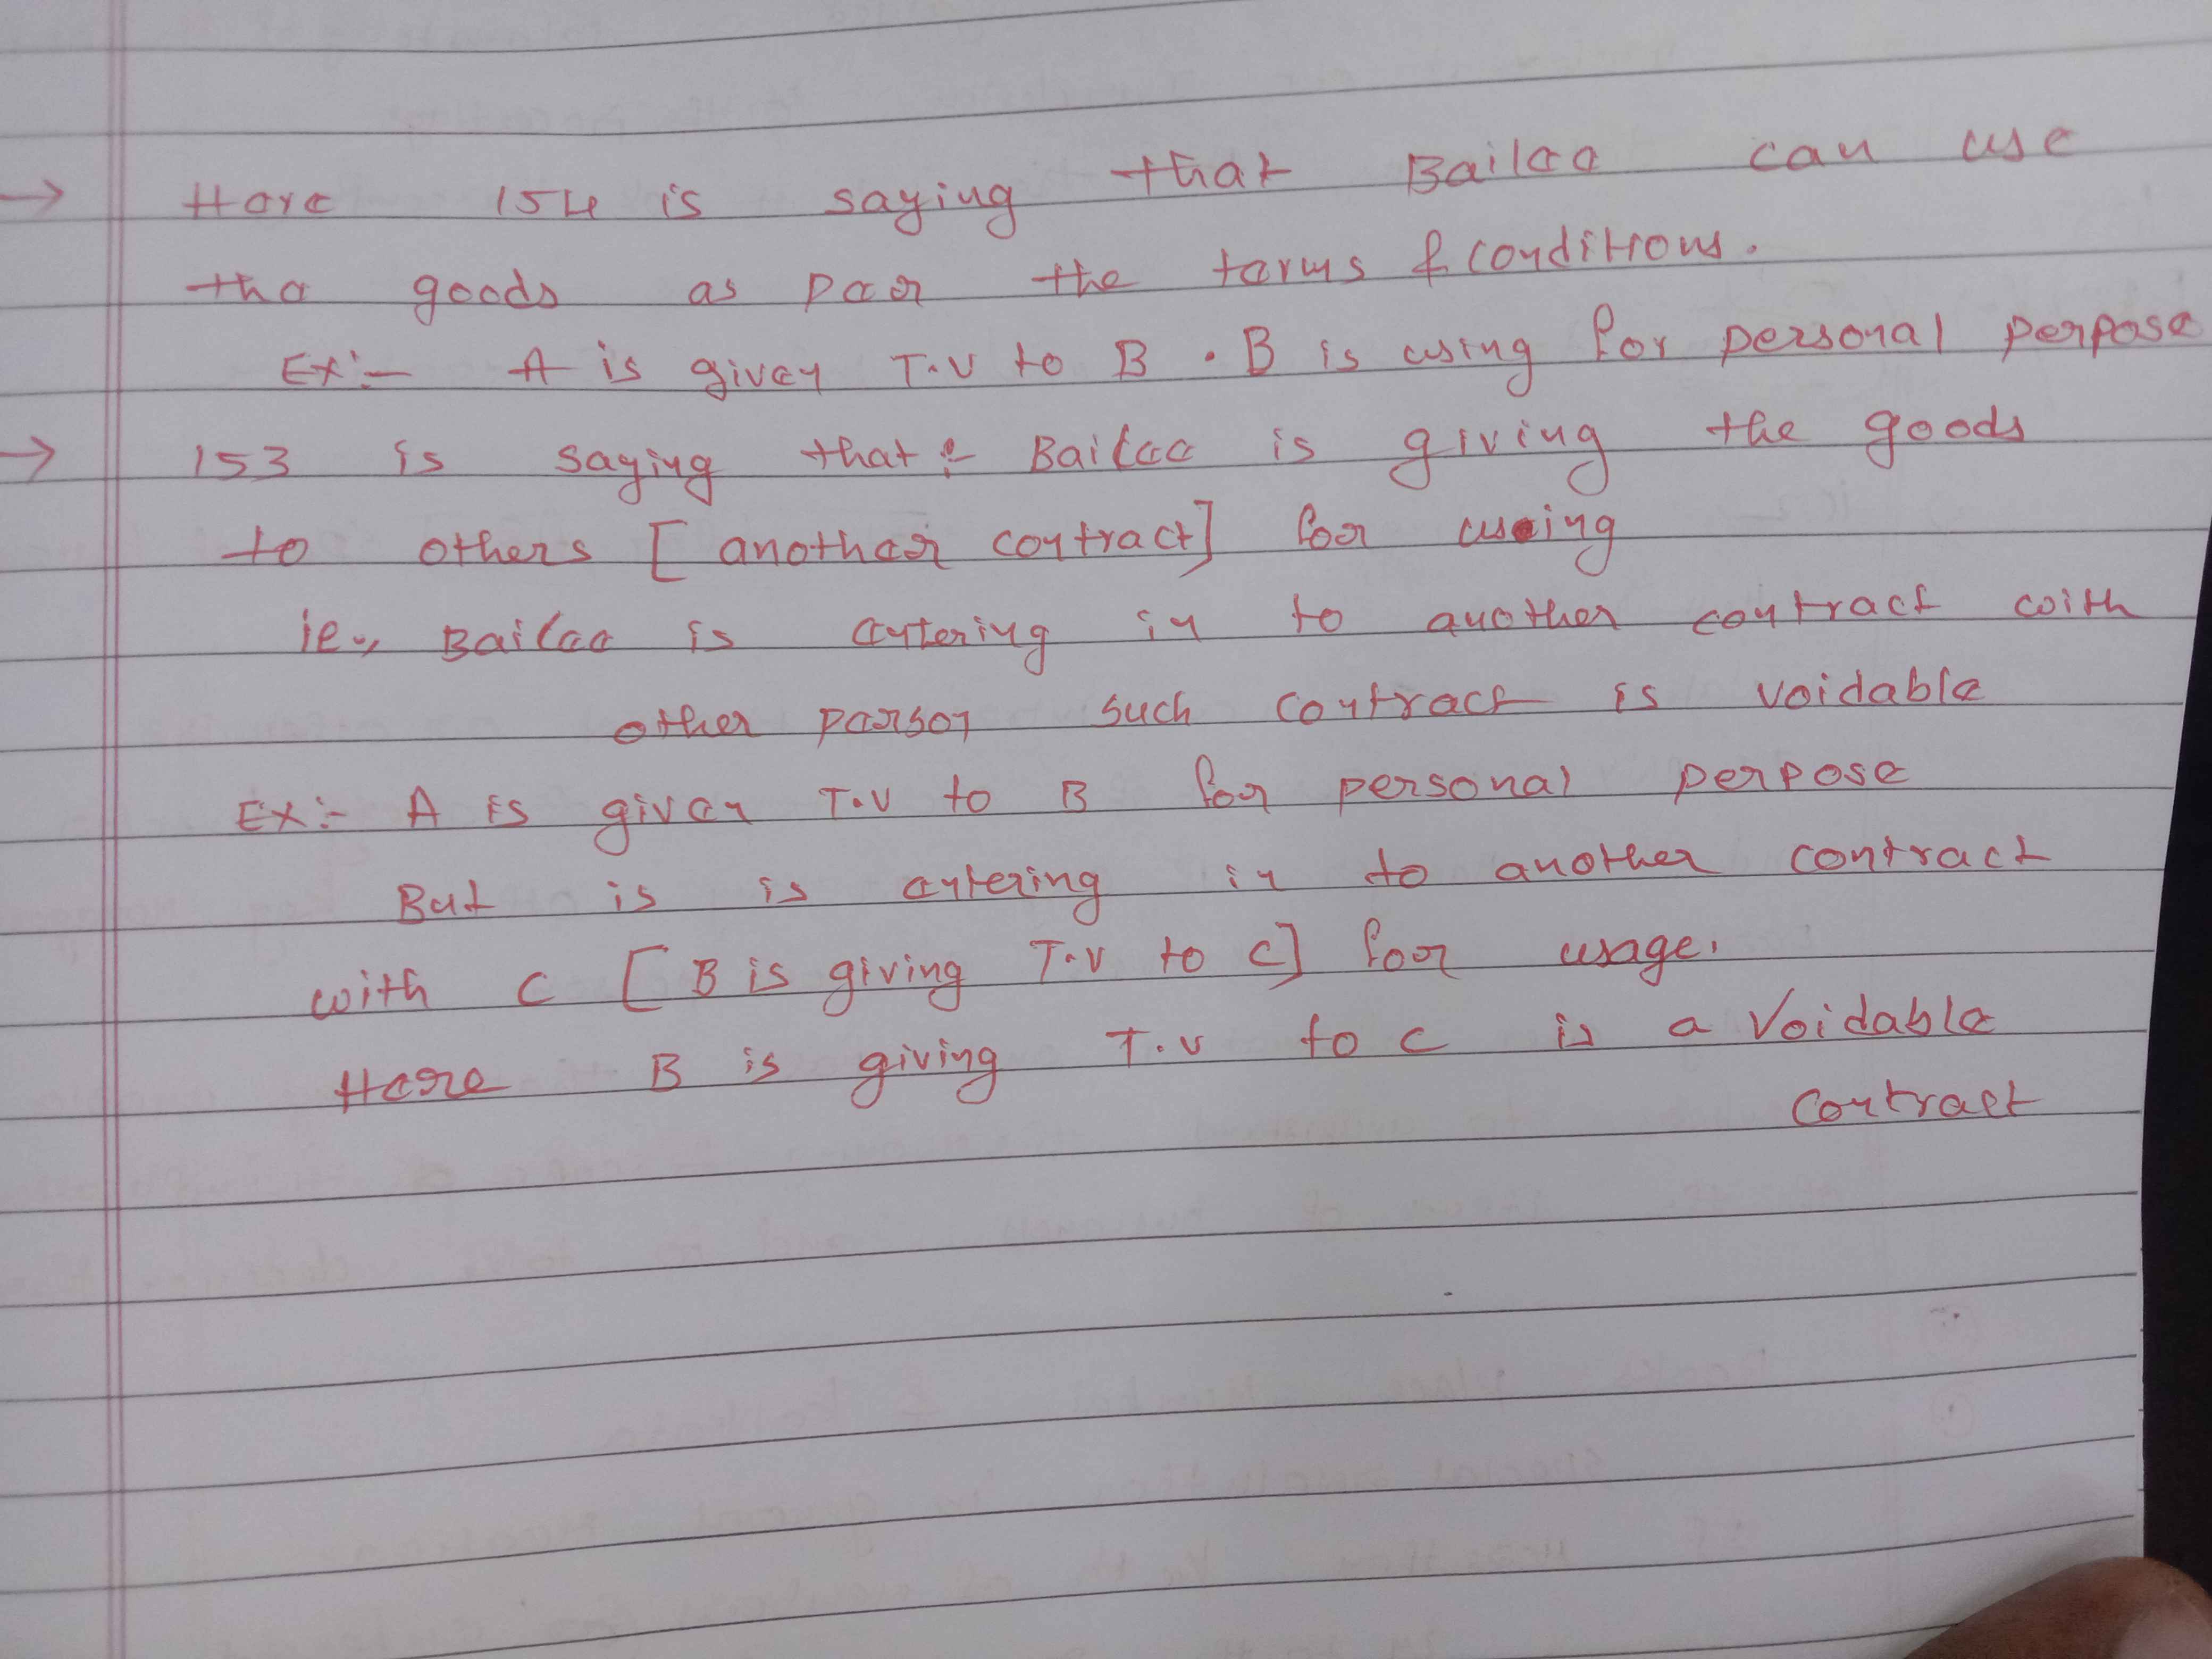 → Here 154 is saying that Bailee can use
the goods as per the terms & conditions.
Ex:- A is given T.V to B . B is using for personal perpose
→ 153 is saying that :- Bailee is giving the goods
to others [ another contract] for using
ie., Bailee is entering in to another contract with
other person such contract is voidable
Ex:- A is given T.V to B for personal perpose
But is is entering in to another contract
with C [ B is giving T.V to C] for usage.
Here B is giving T.V to C is a Voidable
contract